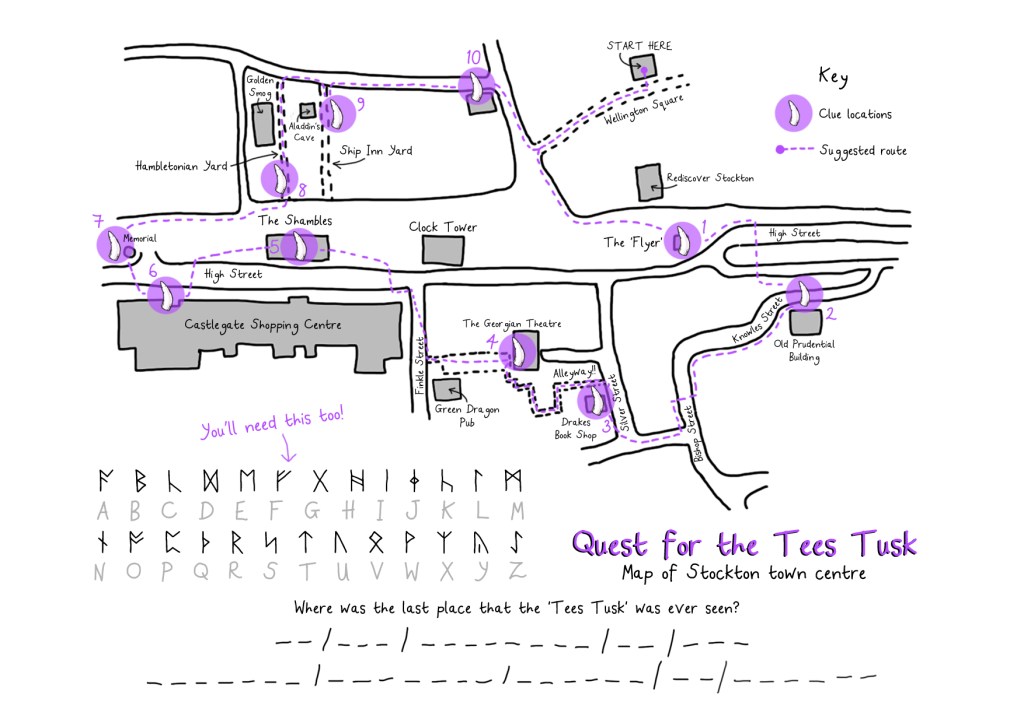 START HERE
Key
Clue locations
Suggested route
10
Golden
Smog
Aladdin's
Cave
9
Wellington Square
Hambletonian Yard
Ship Inn Yard
8
Rediscover Stockton
7
Memorial
The Shambles
5
Clock Tower
The 'Flyer'
1
High Street
6
High Street
Castlegate Shopping Centre
The Georgian Theatre
4
Knowles Street
2
Old Prudential
Building
Finkle Street
Alleyway!!
Green Dragon
Pub
Drakes
Book Shop
3
Silver Street
Bishop Street
You'll need this too!
ᚨ ᛒ ᚳ ᛞ ᛖ ᚠ ᚷ ᚻ ᛁ ᛄ ᚴ ᛚ ᛗ
A B C D E F G H I J K L M
ᚾ ᚩ ᛈ ᚦ ᚱ ᛋ ᛏ ᚢ ᛟ ᚹ ᛉ ᚤ ᛇ
N O P Q R S T U V W X Y Z
Quest for the Tees Tusk
Map of Stockton town centre
Where was the last place that the 'Tees Tusk' was ever seen?